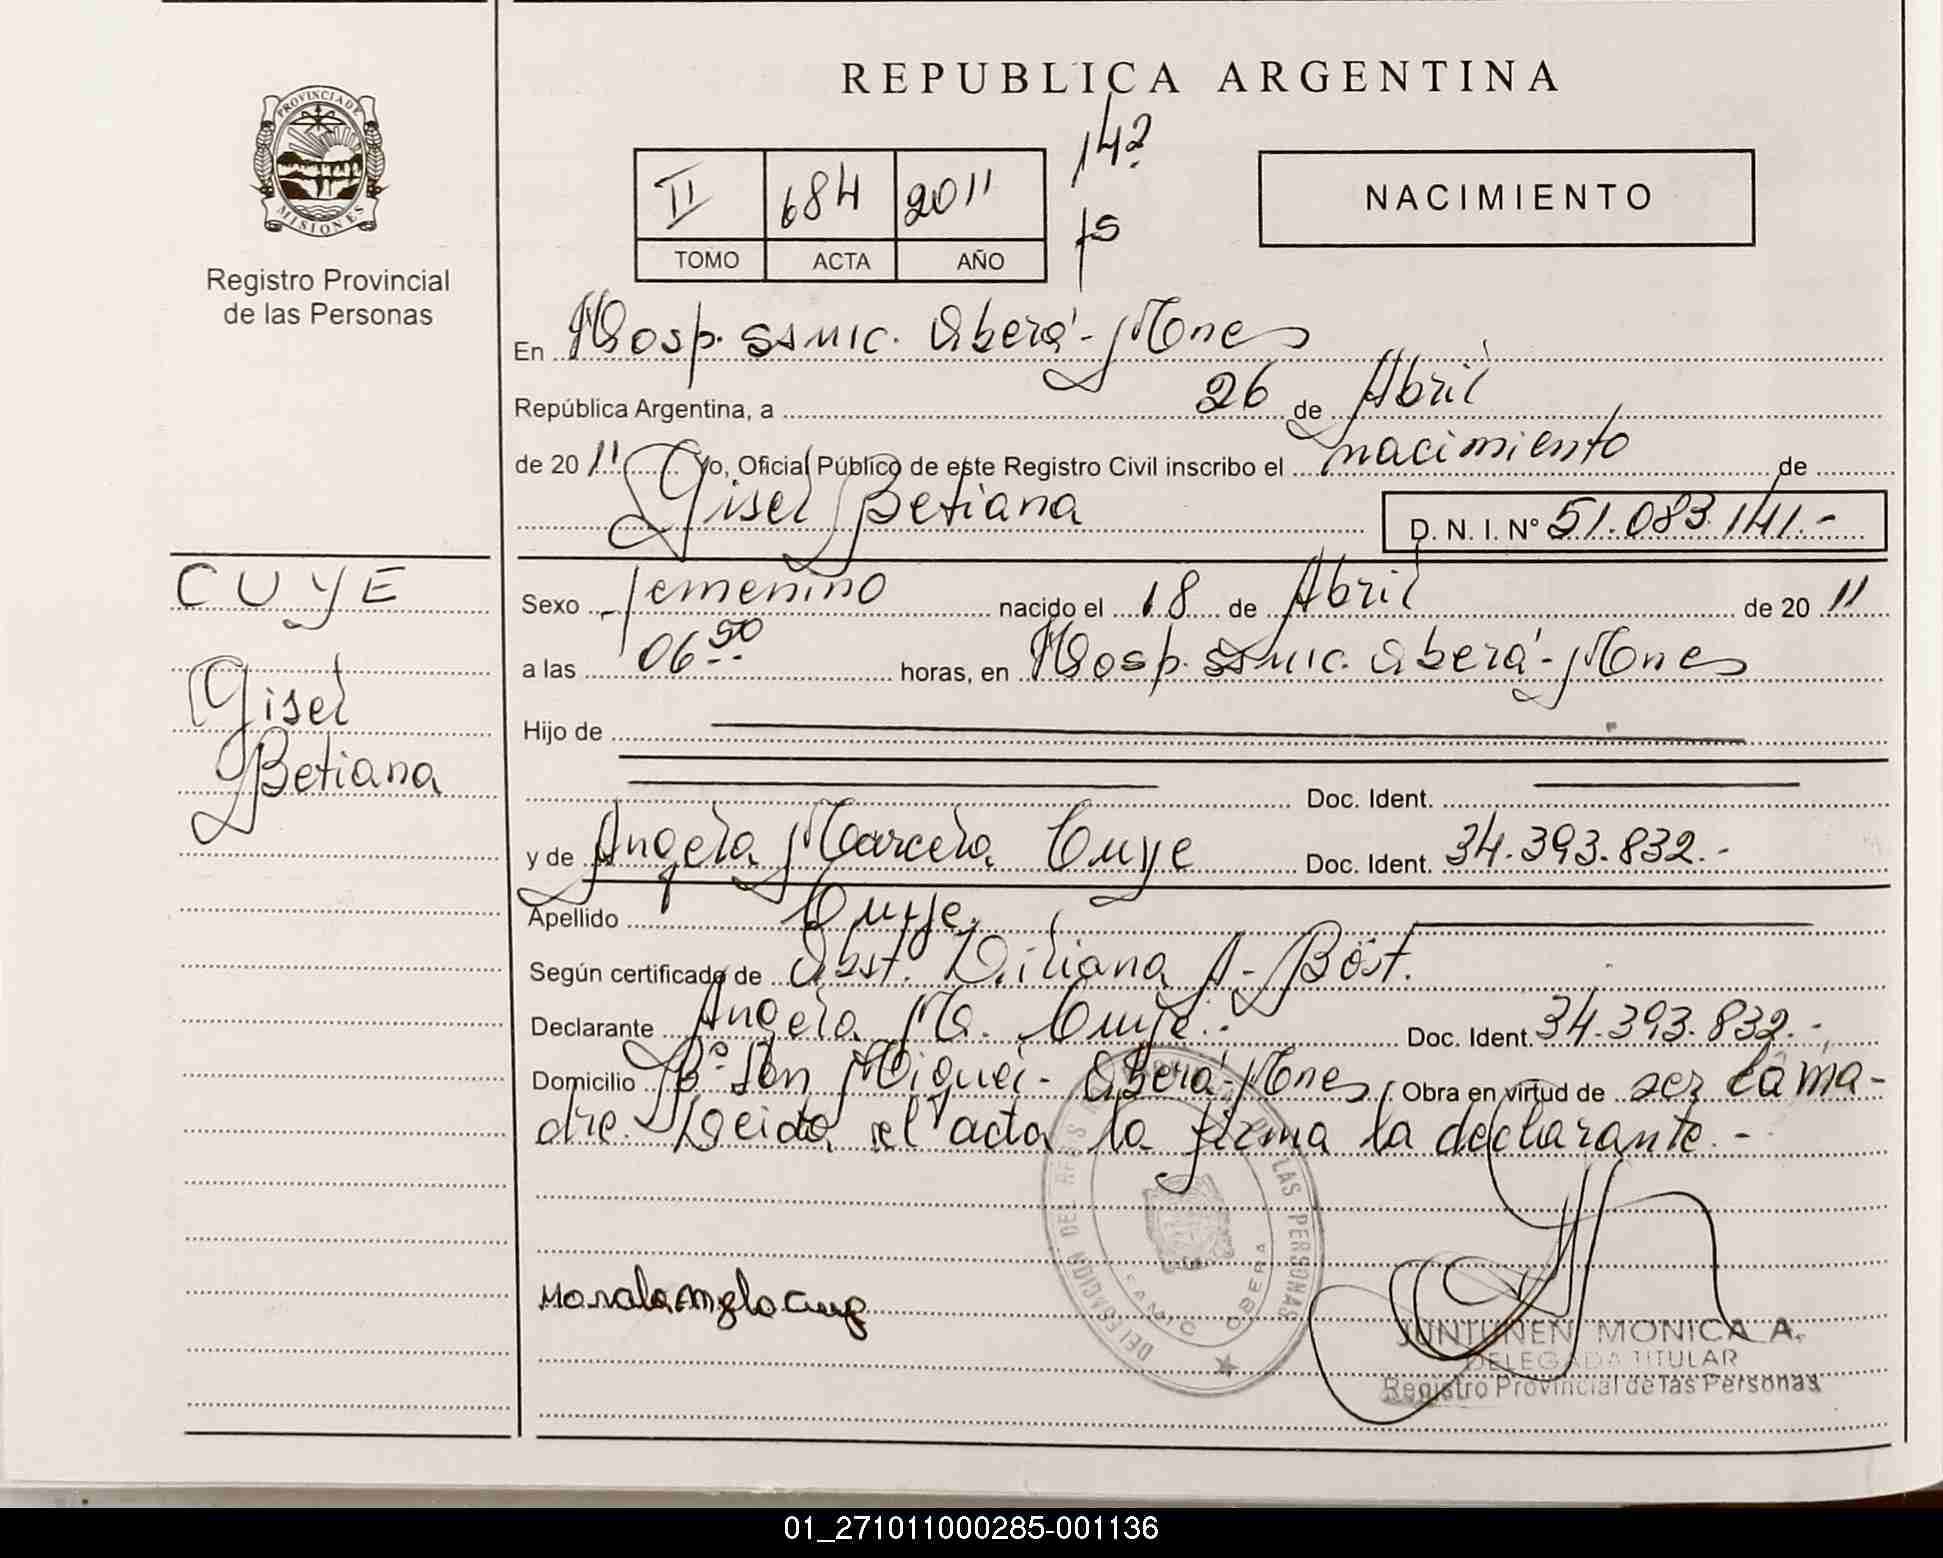 REPUBLICA ARGENTINA
PROVINCIA DE MISIONES
Registro Provincial
de las Personas
II 684 2011
TOMO ACTA AÑO
142
fs
NACIMIENTO
En Hosp. ssmic. Oberá - Mnes
República Argentina, a 26 de Abril
de 2011 Yo, Oficial Público de este Registro Civil inscribo el nacimiento de
Gisel Betiana D. N. I. Nº 51.083.141.-
CUYE
Gisel
Betiana
Sexo femenino nacido el 18 de Abril de 2011
a las 06 50 horas, en Hosp. ssmic. Oberá - Mnes
Hijo de
Doc. Ident.
y de Angela Marcela Cuye Doc. Ident. 34.393.832.-
Apellido Cuye
Según certificado de Obst. Liliana A. Böst.
Declarante Angela M. Cuye.- Doc. Ident. 34.393.832.-
Domicilio Bº San Miguel - Oberá - Mnes. Obra en virtud de ser la ma-
dre. Leida el acta la firma la declarante.-
DELEGACION DEL REGISTRO LAS PERSONAS
OBERA
JUNTUNEN MONICA A.
DELEGADA TITULAR
Registro Provincial de las Personas
01_271011000285-001136